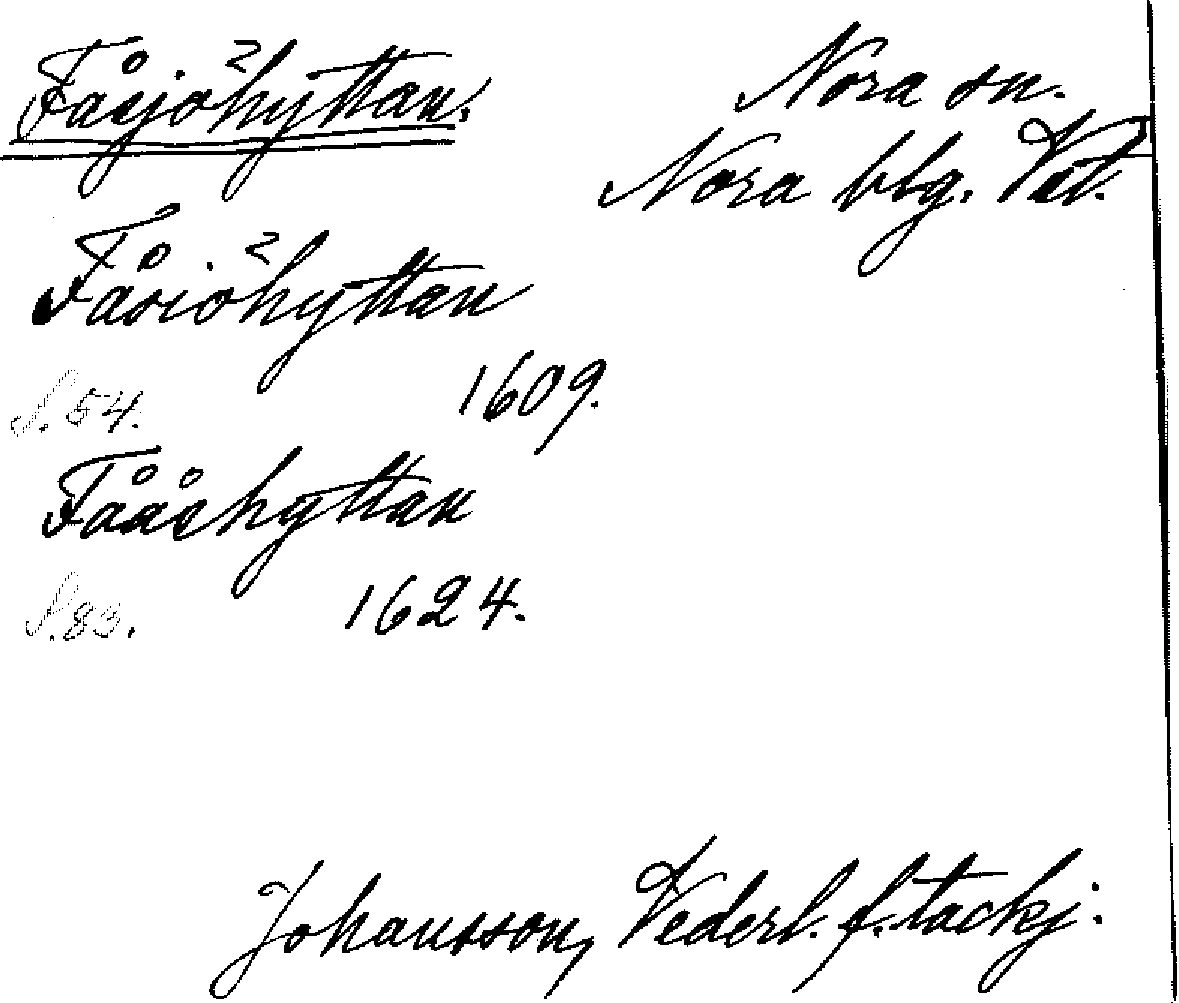 Fåsjöhyttan.
Nora sn.
Nora blg. Vst.
Fåsiöhyttan
S. 54. 1609.
Fååshyttan
S. 83. 1624.
Johansson, Vederl. f. tackj.